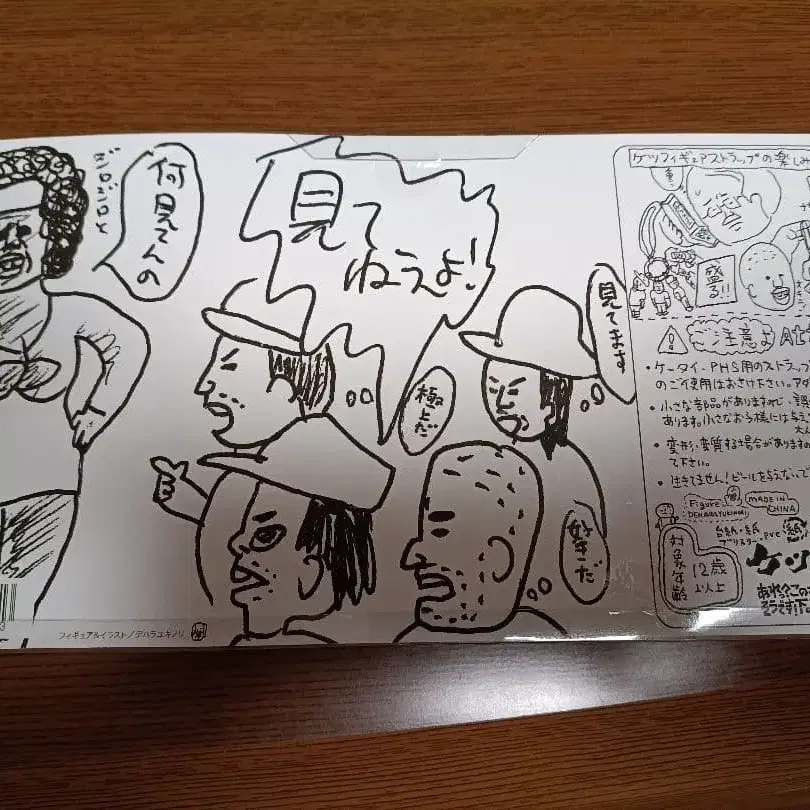 ジロジロと
何見てんの
見て
ねぇよ!
見てます
極上だ
好きだ
フィギュア&イラスト/デハラユキノリ
ケツフィギュアストラップの楽しみ
盛る!!
ご注意よ
・ケータイ・PHS用のストラップ
のご使用はおさけ下さい。ア
・小さな部品がありますので・誤
あります。小さなお子様には与え
・変形・変質する場合があります
て下さい。
・生きてません!ビールを与えないで
Figure
DEHARAYUKINORI
MADE IN
CHINA
台紙・紙
ブリスター・PVC
紙
対象年齢
12歳
以上